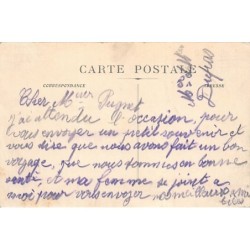 CARTE POSTALE
CORRESPONDANCE
Cher Mr Pugnet
J'ai attendu l'occasion, pour
vous envoyer un petit souvenir et
vous dire que nous avons fait un bon
voyage, que nous sommes en bonne
santé, et ma femme se joint a
moi pour vous envoyer nos meilleures